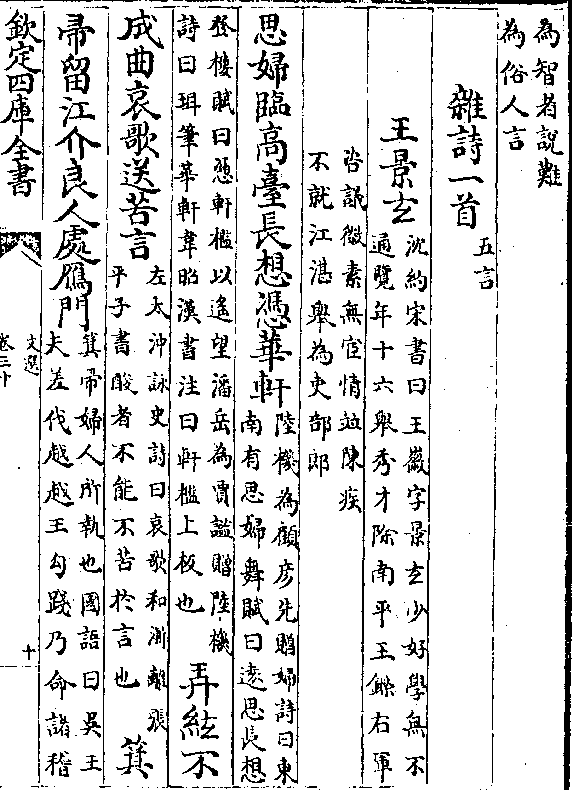 為智者說難
為俗人言
雜詩一首
五言
王景玄
沈約宋書曰王微字景玄少好學無不
通覽年十六舉秀才除南平王鑠右軍
咨議微素無宦情並陳疾
不就江湛舉為吏部郎
思婦臨高臺長想憑華軒
陸機為顧彦先贈婦詩曰東
南有思婦舞賦曰遠思長想
登樓賦曰憑軒檻以遙望潘岳為賈謐贈陸機
詩曰珥筆華軒韋昭漢書注曰軒檻上板也
弄絃不
成曲哀歌送苦言
左太沖詠史詩曰哀歌和漸離張
平子書酸者不能不苦於言也
箕
帚留江介良人處鴈門
箕帚婦人所執也國語曰吳王
夫差伐越越王勾踐乃命諸稽
欽定四庫全書
文選
卷三十
十